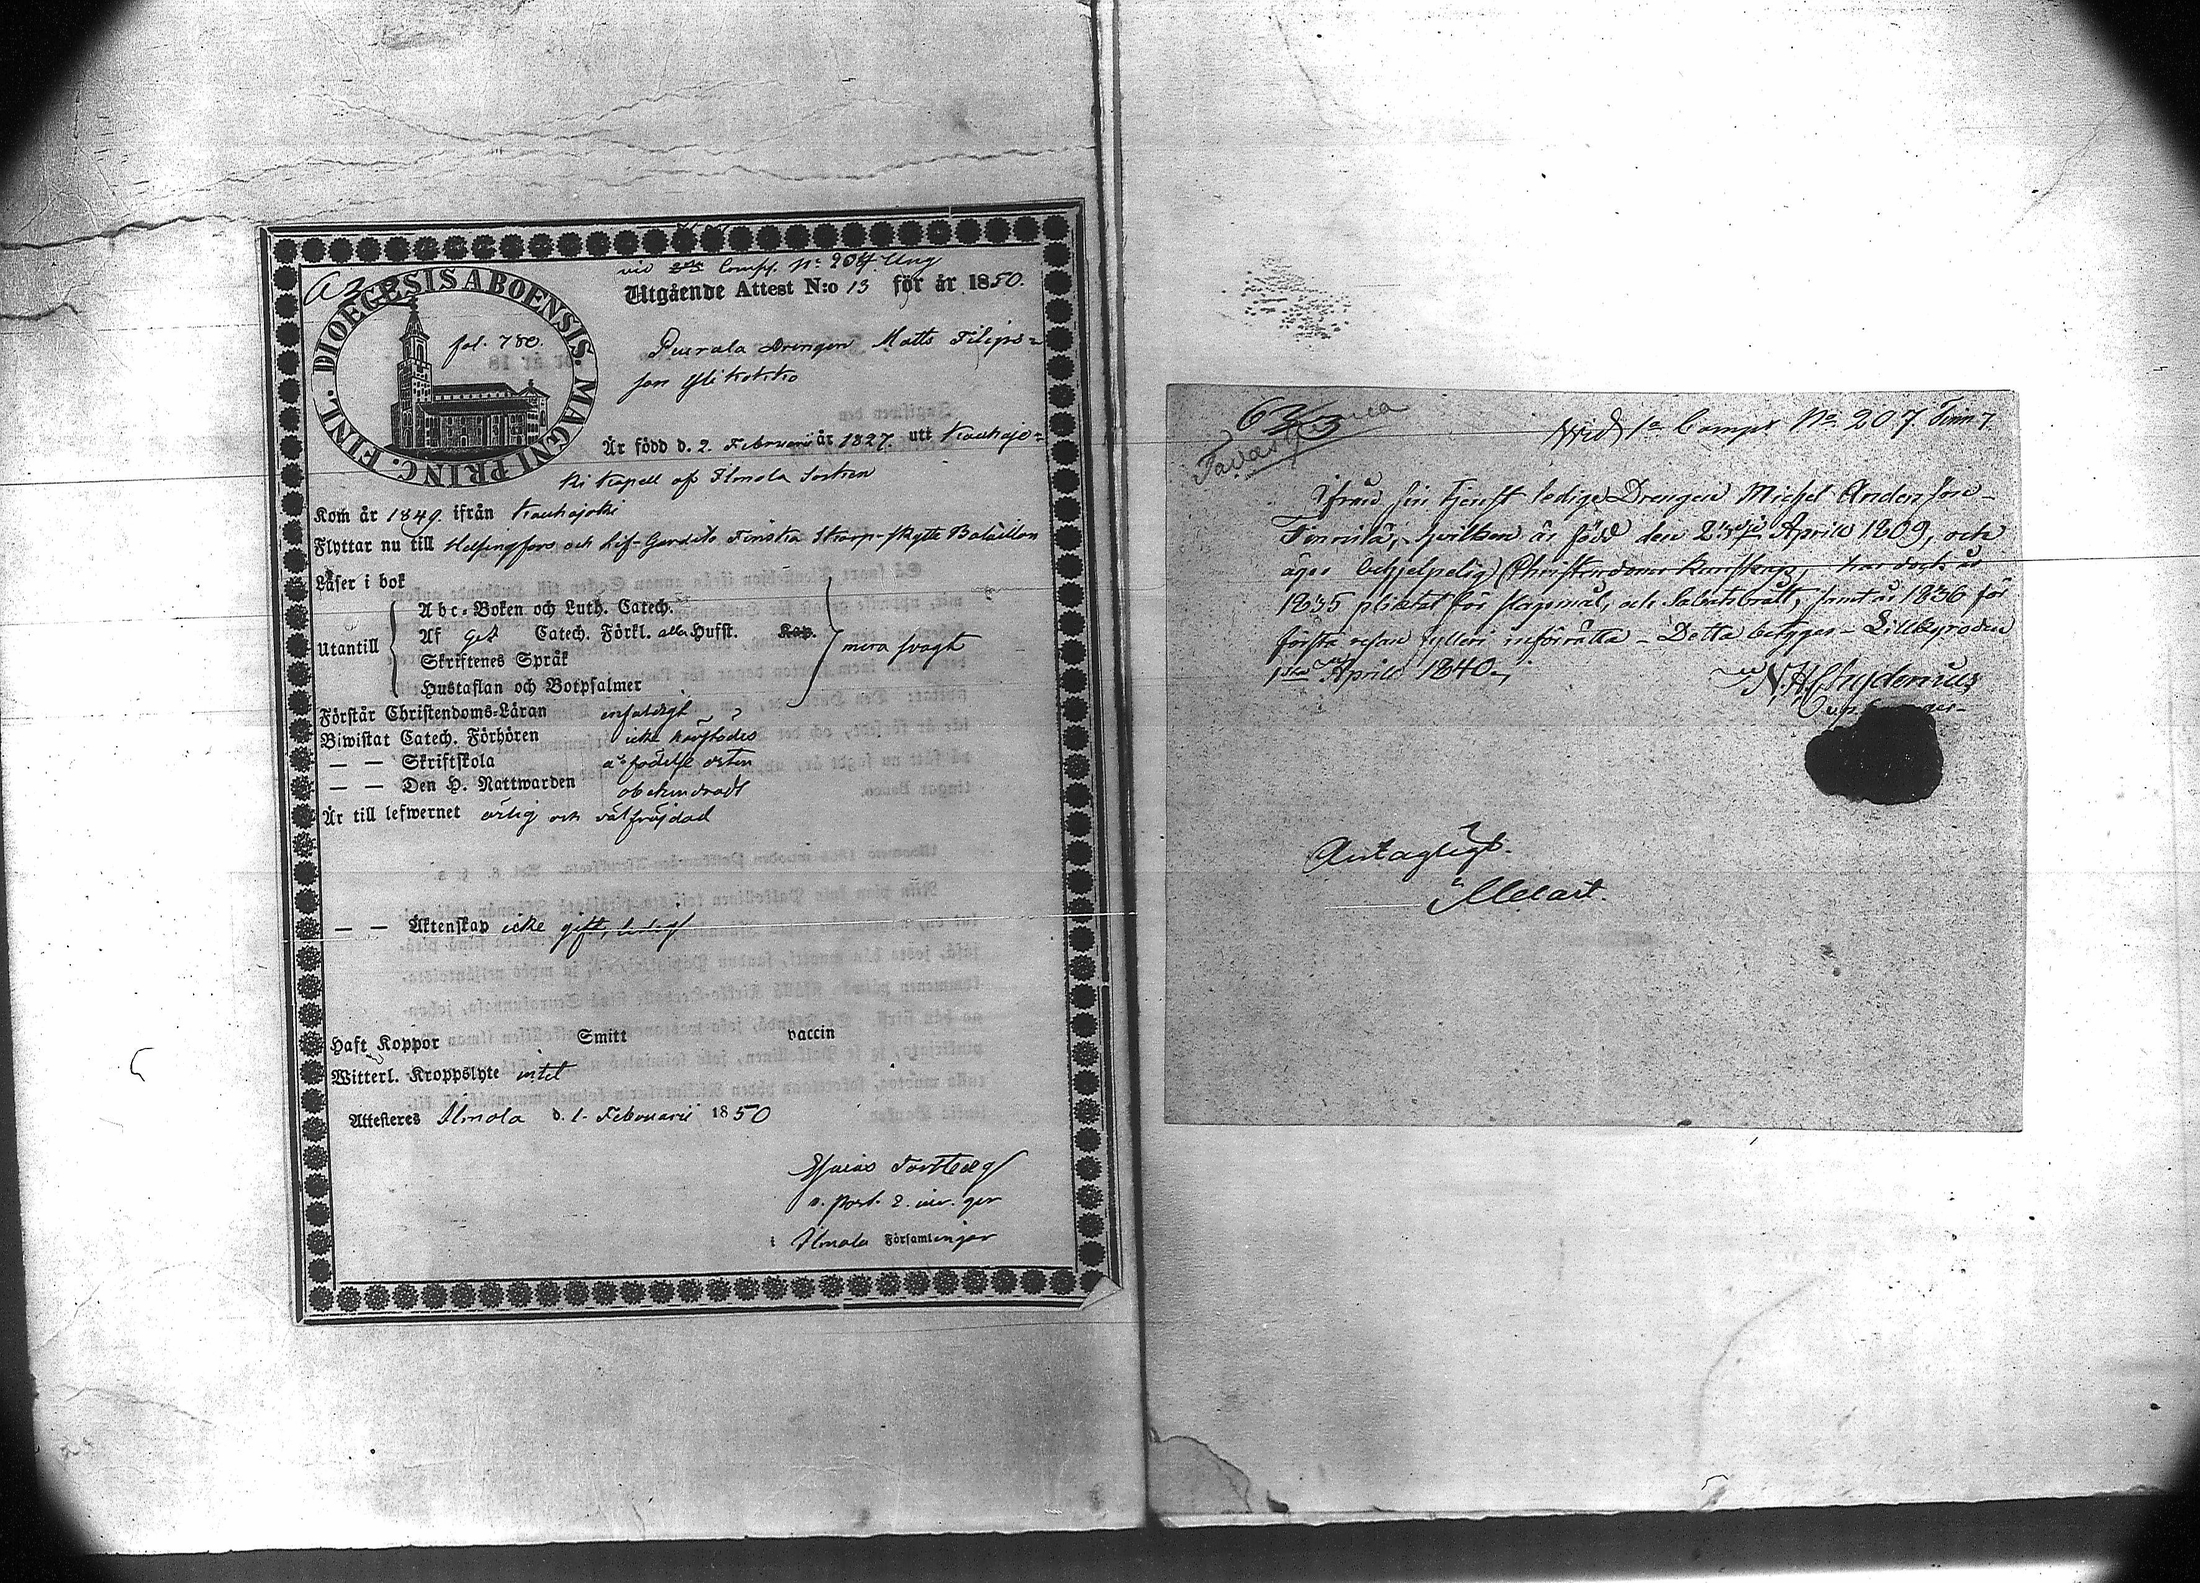 vid Comp. No 204. Ung
Utgående Attest N:o 13 för år 1850.
DIOEGESIS ABOENSIS. MAGNI PRINC. FINL.
fol. 780.
Drengen Matts Filips=
son Ylikokko
Är född d. 2. Februari år 1827. uti Kauhajo=
ki Kapell af Ilmola Socken
Kom år 1849. ifrån Kauhajoki
Flyttar nu till Helsingfors och Lif-Gardets Finska Skarp-skytte Bataillon
Läser i bok
Utantill
Abc-Boken och Luth. Catech.
Af Catech. Förkl. alla Hufst. Kap.
Skriftenes Språk
Hustaflan och Botpsalmer
mera svagt
Förstår Christendoms-Läran enfaldigt
Biwistat Catech. Förhören icke
— — Skriftskola å födelse orten
— — Den H. Nattwarden obehindradt
Är till lefwernet ärlig och välfräjdad
— — Äktenskap icke gift, ledig
Haft Koppor Smitt vaccin
Witterl. Kroppslyte intet
Attesteres Ilmola d. 1. Februari 1850
i Ilmola Församlingar
Wid 1a Comp. No 207.
Ifrån sin tjenst ledige Drengen Michel Andersson
hvilken är född den 23dje April 1809, och
äger behjelpelig Christendoms kunskap, har dock år
1835 pliktat för och Sabbatsbrott, samt år 1836 för
första resan fylleri - Detta betygar - Lillkyro den
1sta April 1840.
Antagligt.